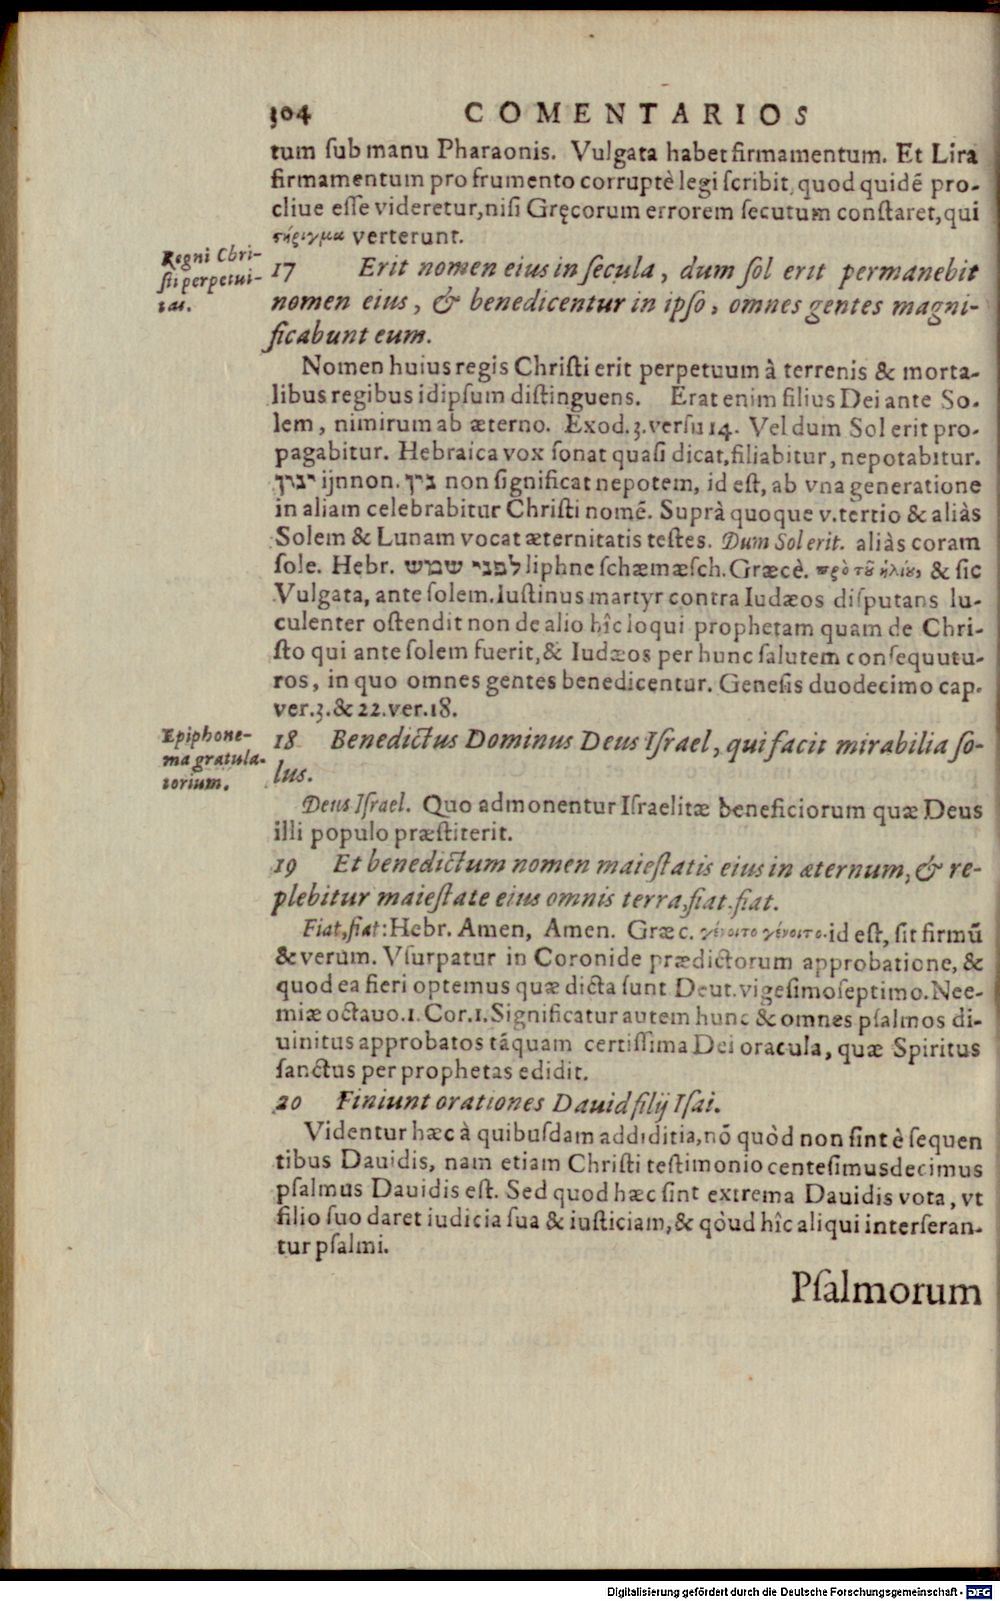 304 COMENTARIOS
tum ſub manu Pharaonis. Vulgata habet firmamentum. Et Lira
firmamentum pro frumento corruptè legi ſcribit, quod quidẽ pro-
cliue eſſe videretur, niſi Gręcorum errorem ſecutum conſtaret, qui
στήριγμα verterunt.
Regni Chri-
ſti perpetui-
tas.
17 Erit nomen eius in ſecula, dum ſol erit permanebit
nomen eius, & benedicentur in ipſo, omnes gentes magni-
ficabunt eum.
Nomen huius regis Chriſti erit perpetuum à terrenis & morta-
libus regibus idipſum diſtinguens. Erat enim filius Dei ante So-
lem, nimirum ab æterno. Exod. 3. verſu 14. Vel dum Sol erit pro-
pagabitur. Hebraica vox ſonat quaſi dicat, filiabitur, nepotabitur.
ינין ijnnon. נין non ſignificat nepotem, id eſt, ab vna generatione
in aliam celebrabitur Chriſti nomẽ. Suprà quoque v. tertio & aliàs
Solem & Lunam vocat æternitatis teſtes. Dum Sol erit. aliàs coram
ſole. Hebr. לפני שמש liphne ſchæmæſch. Græcè. πρὸ τοῦ ἡλίου, & ſic
Vulgata, ante ſolem. Iuſtinus martyr contra Iudæos diſputans lu-
culenter oſtendit non de alio hîc loqui prophetam quam de Chri-
ſto qui ante ſolem fuerit, & Iudæos per hunc ſalutem conſequutu-
ros, in quo omnes gentes benedicentur. Geneſis duodecimo cap.
ver. 3. & 22. ver. 18.
Epiphone-
ma gratula-
torium.
18 Benedictus Dominus Deus Iſrael, qui facit mirabilia ſo-
lus.
Deus Iſrael. Quo admonentur Iſraelitæ beneficiorum quæ Deus
illi populo præſtiterit.
19 Et benedictum nomen maieſtatis eius in æternum, & re-
plebitur maieſtate eius omnis terra, fiat. fiat.
Fiat, fiat: Hebr. Amen, Amen. Græc. γένοιτο γένοιτο. id eſt, ſit firmũ
& verum. Vſurpatur in Coronide prædictorum approbatione, &
quod ea fieri optemus quæ dicta ſunt Deut. vigeſimoſeptimo. Nee-
miæ octauo. 1. Cor. 1. Significatur autem hunc & omnes pſalmos di-
uinitus approbatos tãquam certiſſima Dei oracula, quæ Spiritus
ſanctus per prophetas edidit.
20 Finiunt orationes Dauid filij Iſai.
Videntur hæc à quibuſdam addiditia, nõ quòd non ſint è ſequen
tibus Dauidis, nam etiam Chriſti teſtimonio centeſimusdecimus
pſalmus Dauidis eſt. Sed quod hæc ſint extrema Dauidis vota, vt
filio ſuo daret iudicia ſua & iuſticiam, & qòud hîc aliqui interſeran-
tur pſalmi.
Pſalmorum
Digitalisierung gefördert durch die Deutsche Forschungsgemeinschaft - DFG